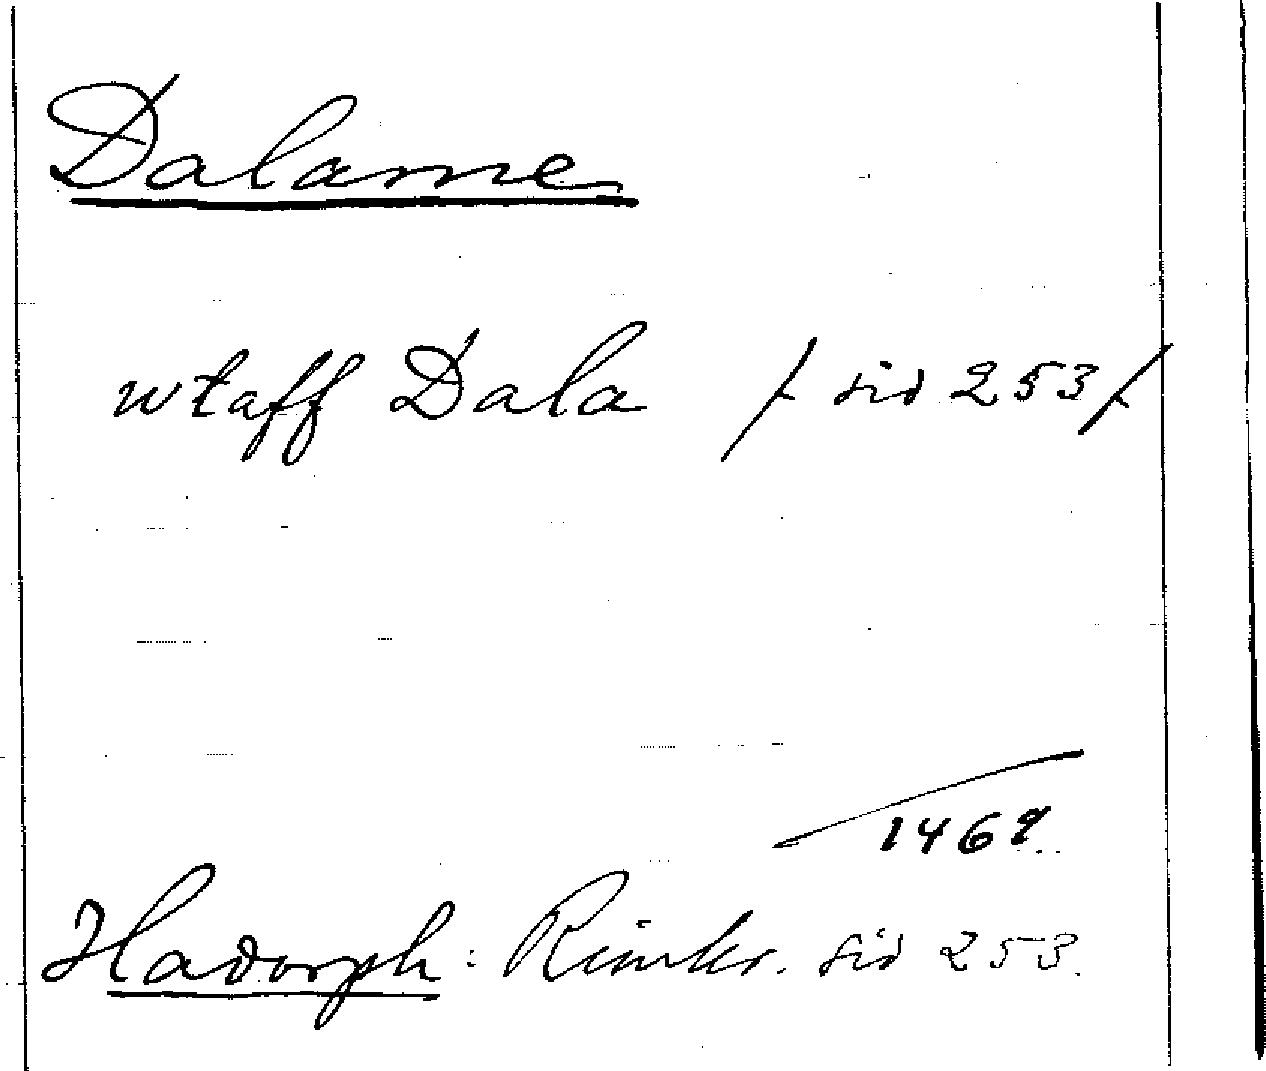 Dalarne
wtaff Dala /: sid 253 /:
1469
Hadorph: Rimkr. sid 253.